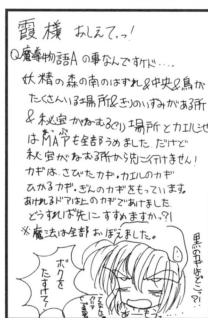 霞様 おしえてっ!
Q 魔導物語Aの事なんですけド‥‥
妖精の森の南のはずれ&中央&鳥が
たくさんいる場所&きりのいずみがある所
&秘宝がねむる 場所とカエル
はMAPも全部うめました。だけど
秘宝がねむる所から先に行けません!
カギは、さびたカギ・カエルのカギ
ひかるカギ・ぎんのカギをもっています。
あかれるドアは上のカギであけました。
どうすれば先にすすめますか。?!
※魔法は全部おぼえました。
ボクを
たすけて!